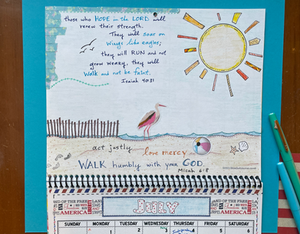 those who HOPE in the LORD will
renew their strength.
They will soar on
wings like eagles;
they will RUN and not
grow weary, they will
Walk and not be faint.
Isaiah 40:31
act justly
love mercy
WALK humbly with your GOD.
Micah 6:8
LAND OF THE FREE
AMERICA
AMERICA
JULY
SUNDAY MONDAY TUESDAY WEDNESDAY THURSDAY FRIDAY SATURDAY